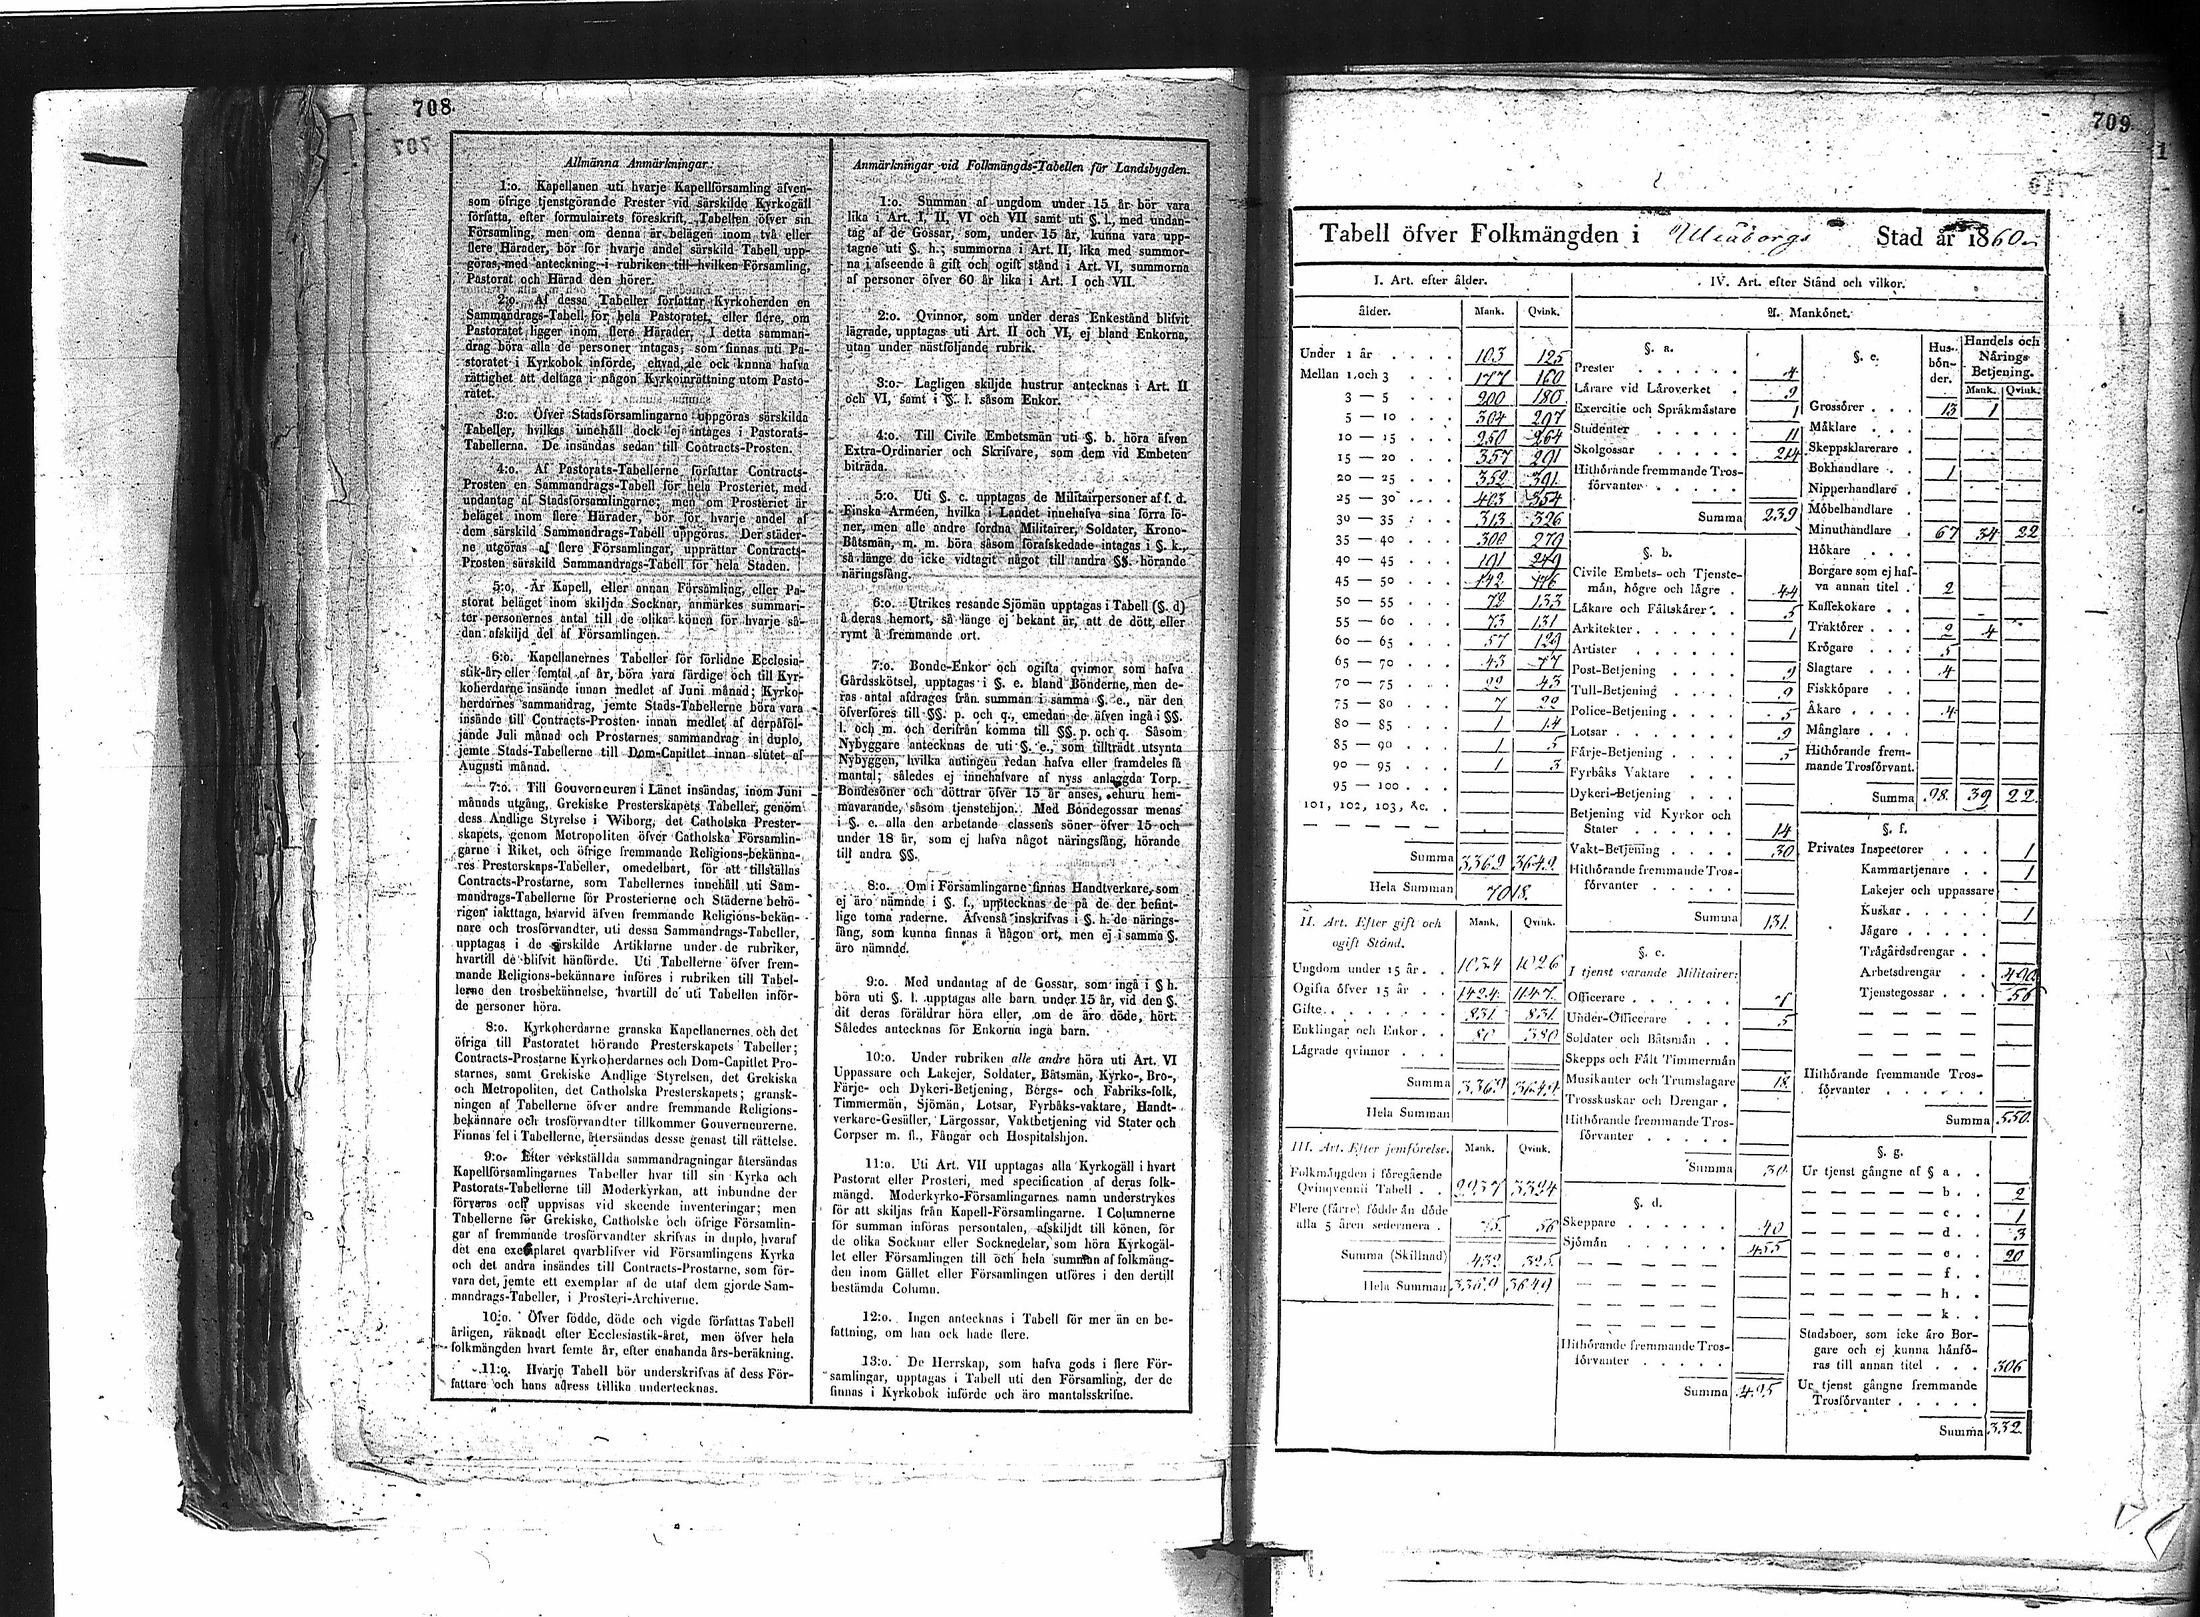 708
Allmänna Anmärkningar.
1:o. Kapellanen uti hvarje Kapellförsamling äfven-
som öfrige tjenstgörande Prester vid särskilde Kyrkogäll
författa, efter formulairets föreskrift, Tabellen öfver sin
Församling, men om denna är belägen inom två eller
flere Härader, bör för hvarje andel särskild Tabell upp-
göras, med anteckning i rubriken till hvilken Församling,
Pastorat och Härad den hörer.
2:o. Af dessa Tabeller författar Kyrkoherden en
Sammandrags-Tabell för hela Pastoratet, eller flere, om
Pastoratet ligger inom flere Härader. I detta samman-
drag böra alla de personer intagas, som finnas uti Pa-
storatet i Kyrkobok införde, ehvad de ock kunna hafva
rättighet att deltaga i någon Kyrkoinrättning utom Pasto-
ratet.
3:o. Öfver Stadsförsamlingarne uppgöras särskilda
Tabeller, hvilkas innehåll dock ej intages i Pastorats-
Tabellerna. De insändas sedan till Contracts-Prosten.
4:o. Af Pastorats-Tabellerne författar Contracts-
Prosten en Sammandrags-Tabell för hela Prosteriet, med
undantag af Stadsförsamlingarne; men om Prosteriet är
beläget inom flere Härader, bör för hvarje andel af
dem särskild Sammandrags-Tabell uppgöras. Der städer-
ne utgöras af flere Församlingar, upprättar Contracts-
Prosten särskild Sammandrags-Tabell för hela Staden.
5:o. Är Kapell, eller annan Församling, eller Pa-
storat beläget inom skiljda Socknar, anmärkes summari-
ter personernes antal till de olika könen för hvarje så-
dan afskiljd del af Församlingen.
6:o. Kapellanernes Tabeller för förlidne Ecclesia-
stik-år, eller femtal af år, böra vara färdige och till Kyr-
koherdarne insände innan medlet af Juni månad; Kyrko-
herdarnes sammandrag, jemte Stads-Tabellerne böra vara
insände till Contracts-Prosten innan medlet af derpåföl-
jande Juli månad och Prostarnes sammandrag in duplo,
jemte Stads-Tabellerne till Dom-Capitlet innan slutet af
Augusti månad.
7:o. Till Gouverneuren i Länet insändas, inom Juni
månads utgång, Grekiske Presterskapets Tabeller, genom
dess Andlige Styrelse i Wiborg, det Catholska Prester-
skapets, genom Metropoliten öfver Catholska Församlin-
garne i Riket, och öfrige fremmande Religions-bekänna-
res Presterskaps-Tabeller, omedelbart, för att tillställas
Contracts-Prostarne, som Tabellernes innehåll uti Sam-
mandrags-Tabellerne för Prosterierne och Städerne behö-
rigen iakttaga, hvarvid äfven fremmande Religions-bekän-
nare och trosförvandter, uti dessa Sammandrags-Tabeller,
upptagas i de särskilde Artiklarne under de rubriker,
hvartill de blifvit hänförde. Uti Tabellerne öfver frem-
mande Religions-bekännare införes i rubriken till Tabel-
lerne den trosbekännelse, hvartill de uti Tabellen inför-
de personer höra.
8:o. Kyrkoherdarne granska Kapellanernes och det
öfriga till Pastoratet hörande Presterskapets Tabeller;
Contracts-Prostarne Kyrkoherdarnes och Dom-Capitlet Pro-
starnes, samt Grekiske Andlige Styrelsen, det Grekiska
och Metropoliten, det Catholska Presterskapets; gransk-
ningen af Tabellerne öfver andre fremmande Religions-
bekännare och trosförvandter tillkommer Gouverneurerne.
Finnas fel i Tabellerne, återsändas desse genast till rättelse.
9:o. Efter verkställda sammandragningar återsändas
Kapellförsamlingarnes Tabeller hvar till sin Kyrka och
Pastorats-Tabellerne till Moderkyrkan, att inbundne der
förvaras och uppvisas vid skeende inventeringar; men
Tabellerne för Grekiske, Catholske och öfrige Församlin-
gar af fremmande trosförvandter skrifvas in duplo, hvaraf
det ena exemplaret qvarblifver vid Församlingens Kyrka
och det andra insändes till Contracts-Prostarne, som för-
vara det, jemte ett exemplar af de utaf dem gjorde Sam-
mandrags-Tabeller, i Prosteri-Archiverne.
10:o. Öfver födde, döde och vigde författas Tabell
årligen, räknadt efter Ecclesiastik-året, men öfver hela
folkmängden hvart femte år, efter enahanda års-beräkning.
11:o. Hvarje Tabell bör underskrifvas af dess För-
fattare och hans adress tillika undertecknas.
Anmärkningar vid Folkmängds-Tabellen för Landsbygden.
1:o. Summan af ungdom under 15 år bör vara
lika i Art. I, II, VI och VII samt uti §. l., med undan-
tag af de Gossar, som, under 15 år, kunna vara upp-
tagne uti §. h.; summorna i Art. II, lika med summor-
na i afseende å gift och ogift stånd i Art. VI, summorna
af personer öfver 60 år lika i Art. I och VII.
2:o. Qvinnor, som under deras Enkestånd blifvit
lägrade, upptagas uti Art. II och VI, ej bland Enkorna,
utan under nästföljande rubrik.
3:o. Lagligen skiljde hustrur antecknas i Art. II
och VI, samt i §. l. såsom Enkor.
4:o. Till Civile Embetsmän uti §. b. höra äfven
Extra-Ordinarier och Skrifvare, som dem vid Embeten
biträda.
5:o. Uti §. c. upptagas de Militairpersoner af f. d.
Finska Arméen, hvilka i Landet innehafva sina förra lö-
ner, men alle andre fordna Militairer, Soldater, Krono-
Båtsmän, m. m. böra såsom förafskedade intagas i §. k.,
så länge de icke vidtagit något till andra §§. hörande
näringsfång.
6:o. Utrikes resande Sjömän upptagas i Tabell (§. d)
å deras hemort, så länge ej bekant är, att de dött, eller
rymt å fremmande ort.
7:o. Bonde-Enkor och ogifta qvinnor som hafva
Gårdsskötsel, upptagas i §. e. bland Bönderne, men de-
ras antal afdrages från summan i samma §. e., när den
öfverföres till §§. p. och q., emedan de äfven ingå i §§.
l. och m. och derifrån komma till §§. p. och q. Såsom
Nybyggare antecknas de uti §. e., som tillträdt utsynta
Nybyggen, hvilka antingen redan hafva eller framdeles få
mantal; således ej innehafvare af nyss anlagda Torp.
Bondesöner och döttrar öfver 15 år anses, ehuru hem-
mavarande, såsom tjenstehjon. Med Bondegossar menas
i §. e. alla den arbetande classens söner öfver 15 och
under 18 år, som ej hafva något näringsfång, hörande
till andra §§.
8:o. Om i Församlingarne finnas Handtverkare, som
ej äro nämnde i §. f., upptecknas de på de der befint-
lige toma raderne. Äfvenså inskrifvas i §. h. de närings-
fång, som kunna finnas å någon ort, men ej i samma §.
äro nämnde.
9:o. Med undantag af de Gossar, som ingå i § h.
böra uti §. l. upptagas alle barn under 15 år, vid den §.
dit deras föräldrar höra eller, om de äro döde, hört.
Således antecknas för Enkorna inga barn.
10:o. Under rubriken alle andre höra uti Art. VI
Uppassare och Lakejer, Soldater, Båtsmän, Kyrko-, Bro-,
Färje- och Dykeri-Betjening, Bergs- och Fabriks-folk,
Timmermän, Sjömän, Lotsar, Fyrbåks-vaktare, Handt-
verkare-Gesäller, Lärgossar, Vaktbetjening vid Stater och
Corpser m. fl., Fångar och Hospitalshjon.
11:o. Uti Art. VII upptagas alla Kyrkogäll i hvart
Pastorat eller Prosteri, med specification af deras folk-
mängd. Moderkyrko-Församlingarnes namn understrykes
för att skiljas från Kapell-Församlingarne. I Columnerne
för summan införas persontalen, afskiljdt till könen, för
de olika Socknar eller Socknedelar, som höra Kyrkogäl-
let eller Församlingen till och hela summan af folkmäng-
den inom Gället eller Församlingen utföres i den dertill
bestämda Column.
12:o. Ingen antecknas i Tabell för mer än en be-
fattning, om han ock hade flere.
13:o. De Herrskap, som hafva gods i flere För-
samlingar, upptagas i Tabell uti den Församling, der de
finnas i Kyrkobok införde och äro mantalsskrifne.
709
Tabell öfver Folkmängden i Uleåborgs Stad år 1860
I. Art. efter ålder.
ålder. Mank. Qvink.
Under 1 år 103 125
Mellan 1, och 3 177 160
3 — 5 200 180
5 — 10 304 297
10 — 15 250 264
15 — 20 357 291
20 — 25 352 391
25 — 30 403 354
30 — 35 313 326
35 — 40 300 279
40 — 45 191 249
45 — 50 142 176
50 — 55 72 133
55 — 60 73 131
60 — 65 57 129
65 — 70 43 77
70 — 75 22 43
75 — 80 7 22
80 — 85 1 14
85 — 90 1 5
90 — 95 1 3
95 — 100
101, 102, 103, &c.
Summa 3369 3649
Hela Summan 7018.
II. Art. Efter gift och
ogift Stånd.
Mank. Qvink.
Ungdom under 15 år 1034 1026
Ogifta öfver 15 år 1424 1147
Gifte 831 831
Enklingar och Enkor 80 380
Lägrade qvinnor
Summa 3369 3649
Hela Summan
III. Art. Efter jemförelse. Mank. Qvink.
Folkmängden i föregående
Qvinqvennii Tabell 2937 3324
Flere (färre) födde än döde
alla 5 åren sedermera 56
Summa (Skillnad) 432 325
Hela Summan 3369 3649
IV. Art. efter Stånd och vilkor.
A. Mankönet.
§. a.
Prester 4
Lärare vid Läroverket 9
Exercitie och Språkmästare 1
Studenter 11
Skolgossar 214
Hithörande fremmande Tros-
förvanter
Summa 239
§. b.
Civile Embets- och Tjenste-
män, högre och lägre 44
Läkare och Fältskärer 5
Arkitekter 1
Artister
Post-Betjening 9
Tull-Betjening 9
Police-Betjening 5
Lotsar 9
Färje-Betjening 5
Fyrbåks Vaktare
Dykeri-Betjening
Betjening vid Kyrkor och
Stater 14
Vakt-Betjening 30
Hithörande fremmande Tros-
förvanter
Summa 131.
§. c.
I tjenst varande Militairer:
Officerare
Under-Officerare 5
Soldater och Båtsmän
Skepps och Fält Timmermän
Musikanter och Trumslagare 18
Trosskuskar och Drengar
Hithörande fremmande Tros-
förvanter
Summa 30.
§. d.
Skeppare 40
Sjömän 455
Hithörande fremmande Tros-
förvanter
Summa 495
§. e.
Hus-
bön-
der.
Handels och
Närings
Betjening.
Mank. Qvink.
Grossörer 13 1
Mäklare
Skeppsklarerare
Bokhandlare 1
Nipperhandlare
Möbelhandlare
Minuthandlare 67 34 22
Hökare
Borgare som ej haf-
va annan titel 2
Kaffekokare
Traktörer 2 4
Krögare 5
Slagtare 4
Fiskköpare
Åkare 4
Månglare
Hithörande frem-
mande Trosförvant.
Summa 98. 39 22
§. f.
Privates Inspectorer 1
Kammartjenare 1
Lakejer och uppassare
Kuskar 1
Jägare
Trågårdsdrengar
Arbetsdrengar 490
Tjenstegossar 56
Hithörande fremmande Tros-
förvanter
Summa 550.
§. g.
Ur tjenst gångne af § a
— — — — — b. 2
— — — — — c. 1
— — — — — d. 3
— — — — — e. 20
— — — — — f.
— — — — — h.
— — — — — k.
Stadsboer, som icke äro Bor-
gare och ej kunna hänfö-
ras till annan titel 306
Ur tjenst gångne fremmande
Trosförvanter
Summa 332.